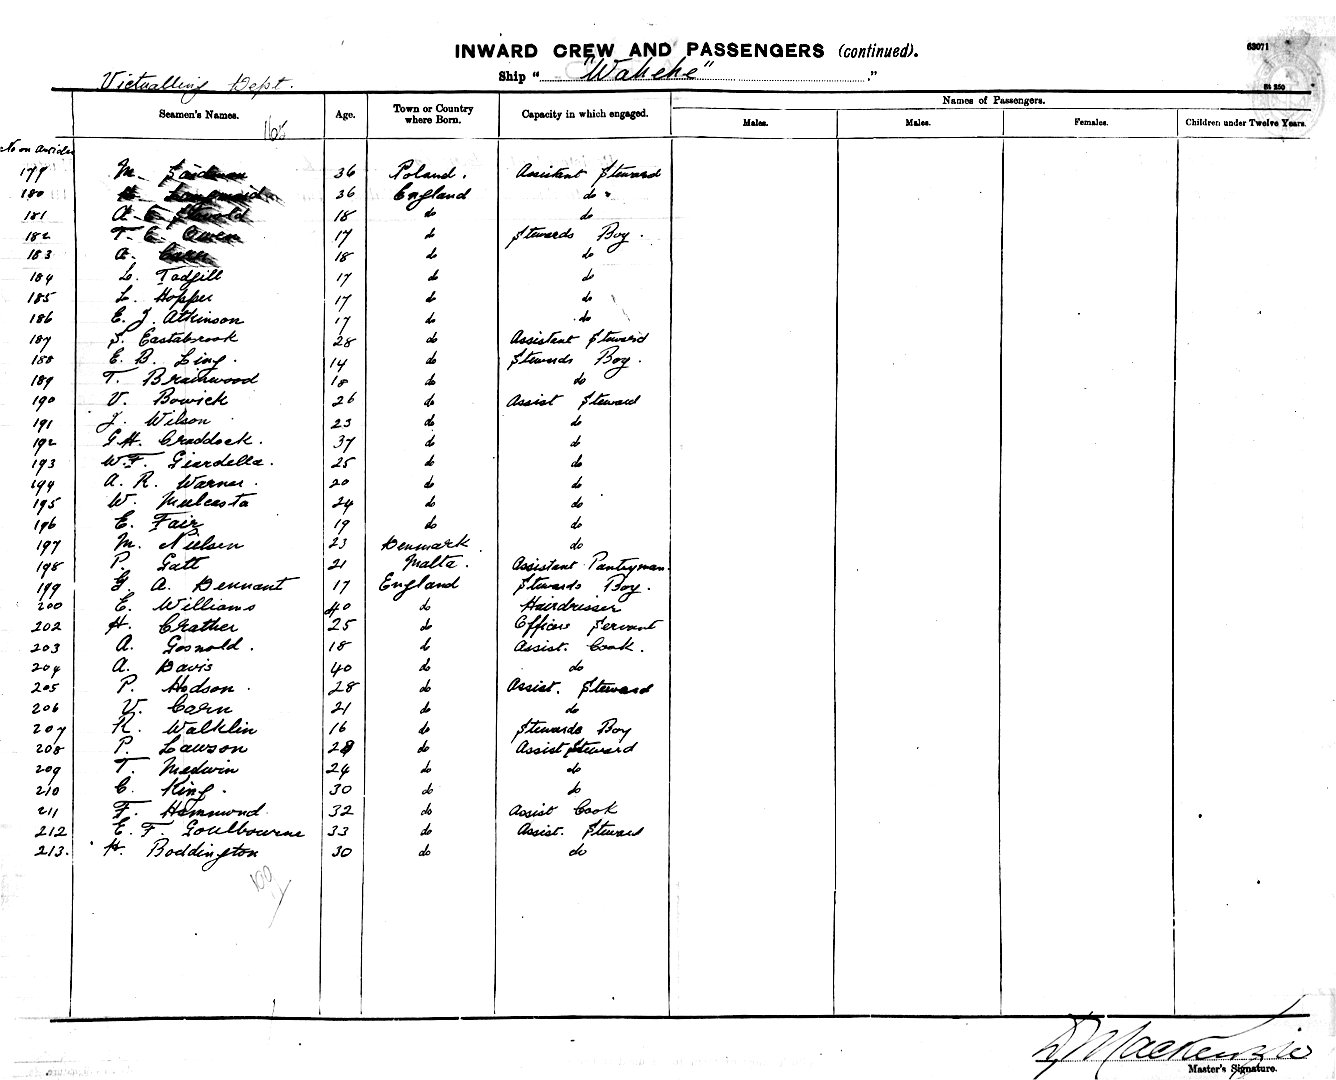 63071
INWARD CREW AND PASSENGERS (continued).
Ship " "Wahehe" "
Victualling Dept.
84 250
Seamen's Names. Age. Town or Country where Born. Capacity in which engaged. Names of Passengers.
Males. Males. Females. Children under Twelve Years.
168
No on articles
179 M. 36 Poland. Assistant Steward
180 H. 36 England do
181 A. E. 18 do do
182 T. E. Owen 17 do Stewards Boy.
183 A. Carr 18 do do
184 L. Tadgill 17 do do
185 L. Hopper 17 do do
186 E. J. Atkinson 17 do do
187 S. Eastabrook 28 do Assistant Steward
188 E. B. Ling. 14 do Stewards Boy.
189 T. Brainwood 18 do do
190 V. Bowick 26 do Assist Steward
191 J. Wilson 23 do do
192 G.H. Craddock. 37 do do
193 W.F. Giardella. 25 do do
194 A. R. Warner. 20 do do
195 W. Mulcasta 24 do do
196 E. Fair 19 do do
197 M. Nielsen 23 Denmark do
198 P. Gatt 21 Malta. Assistant Pantryman.
199 G. A. Dennant 17 England Stewards Boy.
200 E. Williams 40 do Hairdresser
202 H. Crather 25 do Officers Servant
203 A. Gosnold. 18 do Assist. Cook.
204 A. Davis 40 do do
205 P. Hodson. 28 do Assist. Steward
206 V. Carn 21 do do
207 R. Walklin 16 do Stewards Boy
208 P. Lawson 28 do Assist Steward
209 T. Medwin 24 do do
210 C. King. 30 do do
211 F. Hammond 32 do Assist Cook
212 E. F. Goulbourne 33 do Assist. Steward
213. H. Boddington 30 do do
100
D Mackenzie
Master's Signature.